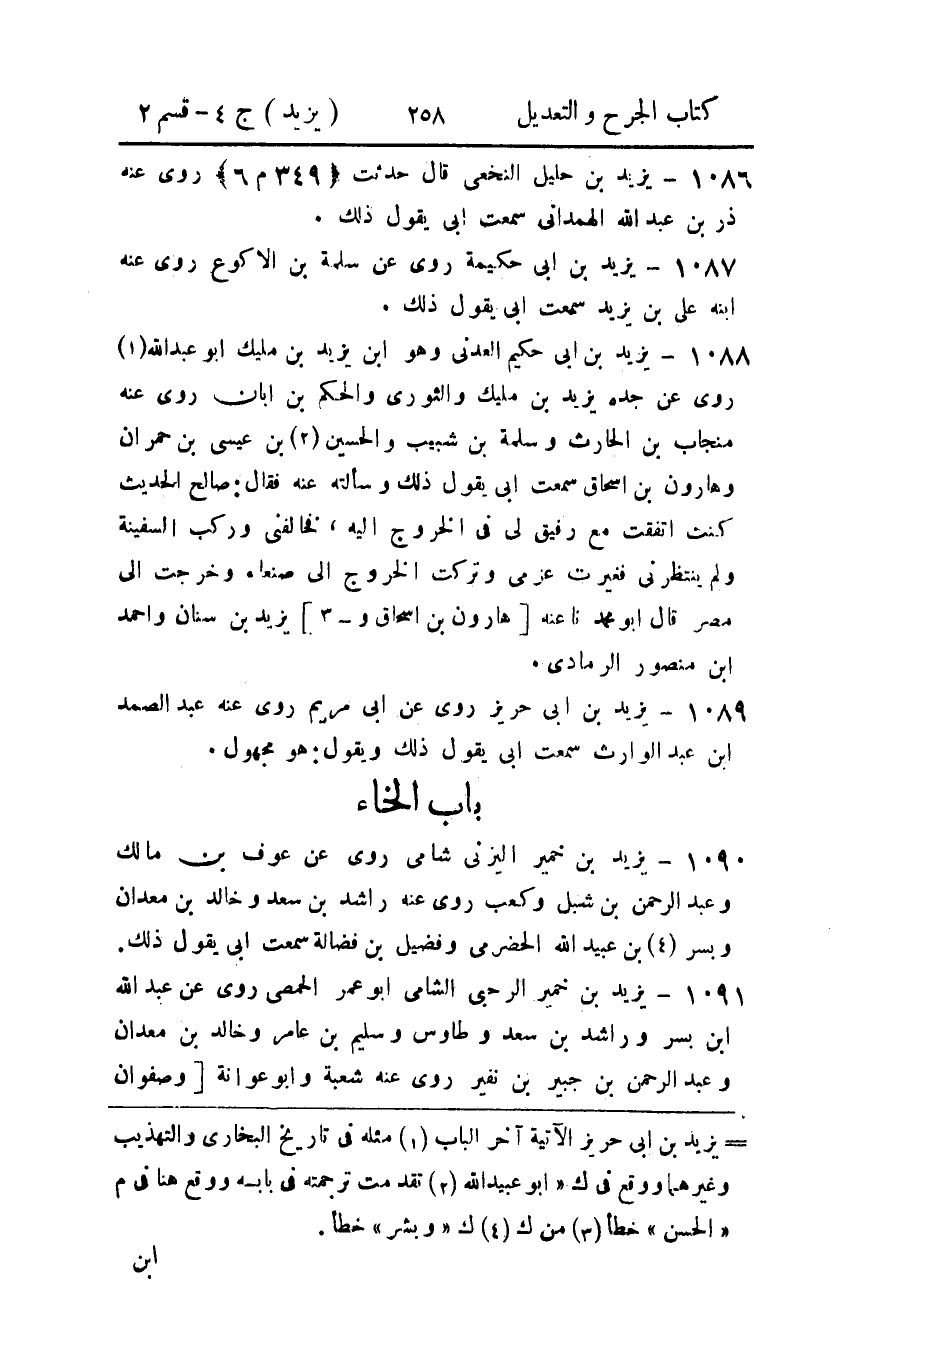 كتاب الجرح والتعديل ٢٥٨ (يزيد) ج ٤ - قسم ٢
١٠٨٦ - يزيد بن حليل النخعى قال حدثت ﴿٣٤٩ م ٦﴾ روى عنه
ذر بن عبد الله الهمدانى سمعت ابى يقول ذلك .
١٠٨٧ - يزيد بن ابى حكيمة روى عن سلمة بن الاكوع روى عنه
ابنه على بن يزيد سمعت ابى يقول ذلك .
١٠٨٨ - يزيد بن ابى حكيم العدنى وهو ابن يزيد بن مليك ابو عبدالله(١)
روى عن جده يزيد بن مليك والثورى والحكم بن ابان روى عنه
منجاب بن الحارث وسلمة بن شبيب والحسين (٢) بن عيسى بن حمران
وهارون بن اسحاق سمعت ابى يقول ذلك وسألته عنه فقال: صالح الحديث
كنت اتفقت مع رفيق لى فى الخروج اليه ، فخالفنى وركب السفينة
ولم ينتظرنى فغيرت عزمى وتركت الخروج الى صنعاء وخرجت الى
مصر قال ابو محمد نا عنه [هارون بن اسحاق و - ٣] يزيد بن سنان واحمد
ابن منصور الرمادى .
١٠٨٩ - يزيد بن ابى حريز روى عن ابى مريم روى عنه عبد الصمد
ابن عبد الوارث سمعت ابى يقول ذلك ويقول: هو مجهول .
باب الخاء
١٠٩٠ - يزيد بن خمير اليزنى شامى روى عن عوف بن مالك
وعبد الرحمن بن شبل وكعب روى عنه راشد بن سعد وخالد بن معدان
وبسر (٤) بن عبيد الله الحضرمى وفضيل بن فضالة سمعت ابى يقول ذلك.
١٠٩١ - يزيد بن خمير الرحبى الشامى ابو عمر الحمصى روى عن عبد الله
ابن بسر وراشد بن سعد وطاوس وسليم بن عامر وخالد بن معدان
وعبد الرحمن بن جبير بن نفير روى عنه شعبة وابو عوانة [وصفوان
= يزيد بن ابى حريز الآتية آخر الباب (١) مثله فى تاريخ البخارى والتهذيب
وغيرهما ووقع فى ك « ابو عبيدالله (٢) تقدمت ترجمته فى بابه ووقع هنا فى م
« الحسن » خطأ (٣) من ك (٤) ك « وبشر » خطأ .
ابن